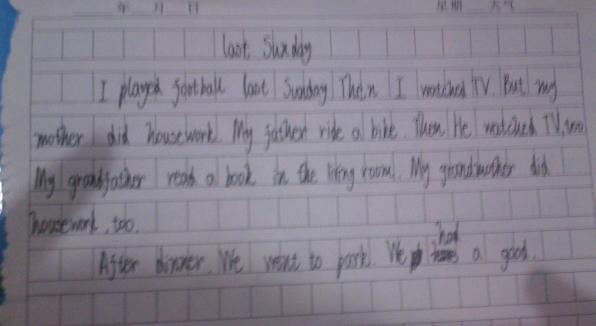 年 月 日 星期 天气
last Sunday
I played football last Sunday Then I watched TV. But my
mother did housework. My father ride a bike. Then He watched TV, too.
My grandfather read a book in the living room. My grandmother did
housework, too.
After dinner. We went to park. We had a good.